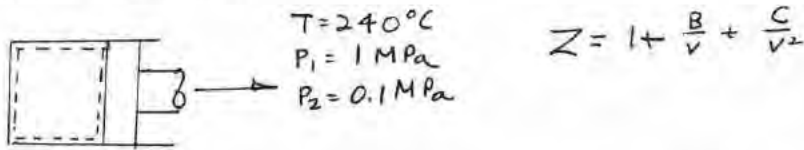 T=240°C
P₁ = 1 MPa
P₂ = 0.1 MPa
Z = 1 + B/v + C/v²